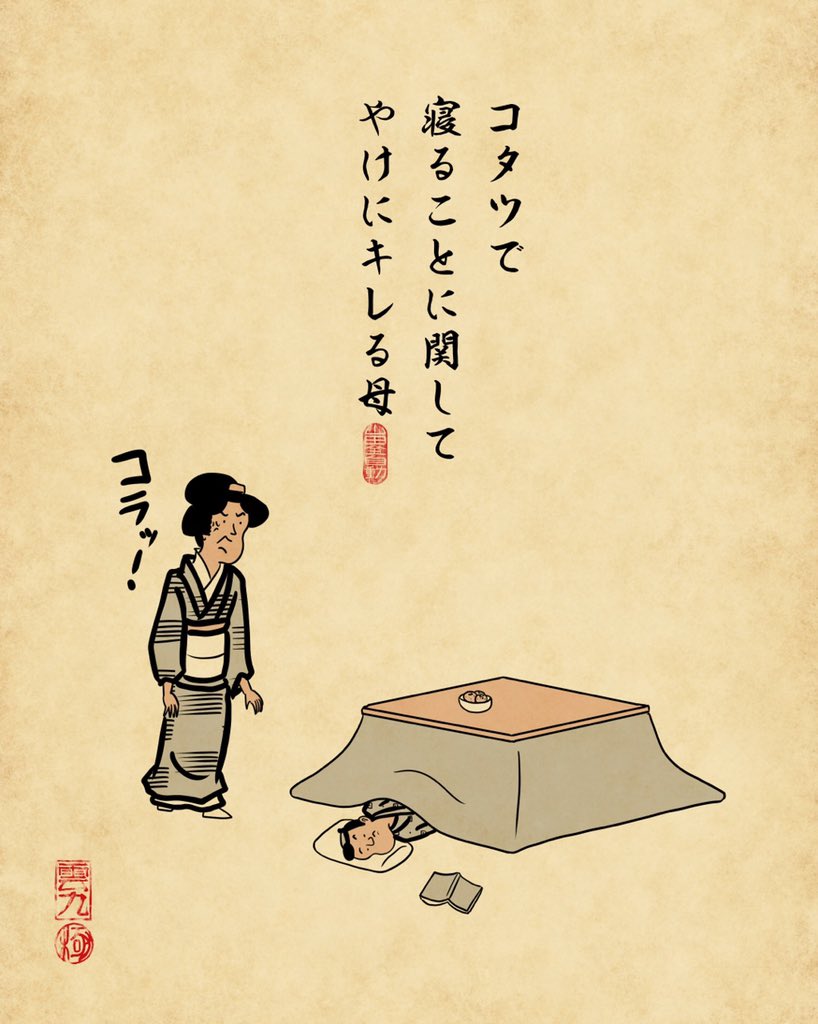 コタツで
寝ることに関して
やけにキレる母
コラッ！